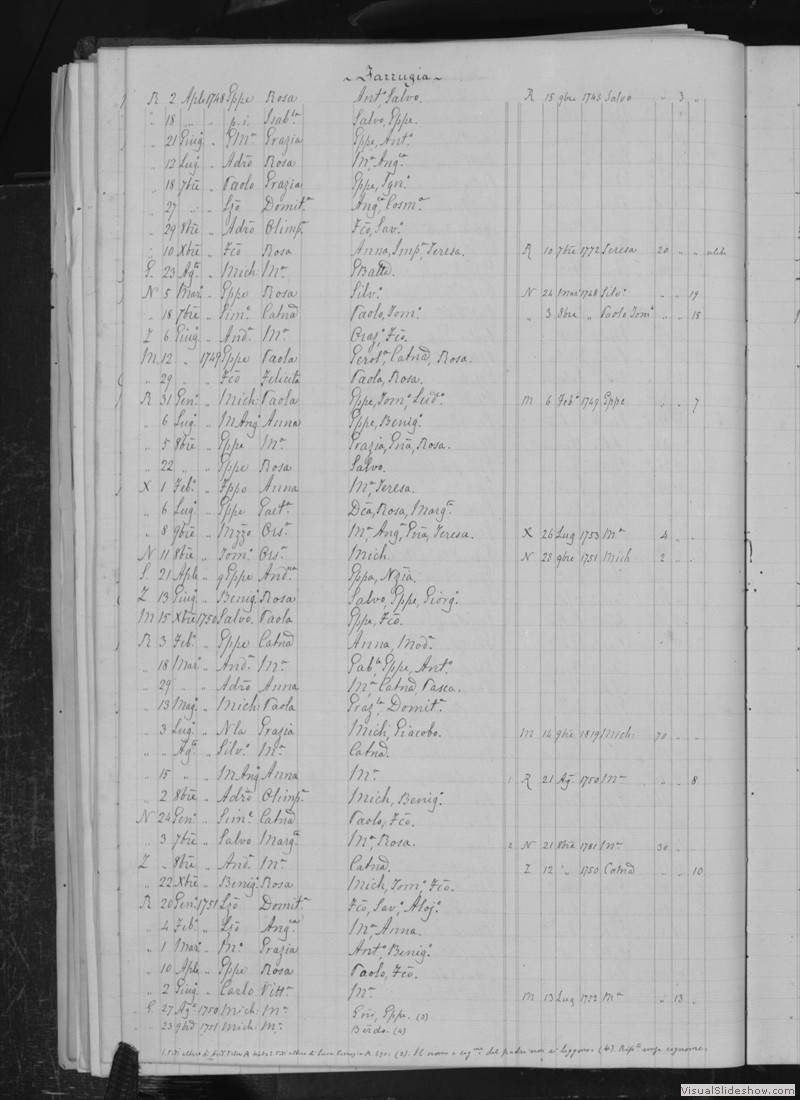 ~ Farrugia ~
R 2 Aple 1748 Eppe Rosa Antº Salvo. R 15 9bre 1748 Salvo " 3 "
" 18 " " p.i. Isabla Salvo, Eppe.
" 21 Giugº " GMª Grazia Eppe, Antº
" 12 Lugº " Adrõ Rosa Mª, Angª
" 18 7bre " Paolo Grazia Eppe, Ignº
" 27 " " Lzõ Domitª Angª, Cosmº
" 29 8bre " Adrõ Olimpª Fcõ, Savº
" 10 Xbre " Fcõ Rosa Anna, Impª, Teresa. R 10 7bre 1772 Teresa 20 " "
G. 23 Agº " Mich: Mª GBatta.
N 5 Marº " Eppe Rosa Silvº N 24 Marº 1748 Silvº " " 19
" 18 7bre " Simº Catnã Paolo, Tomº " 3 8bre " Paolo Tomº " " 15
Z 6 Giugº " Andª Mª Orazº, Fcõ.
M 12 " 1749 Eppe Paola Gerolª, Catnã, Rosa.
" 29 " " Fcõ Felicita Paola, Rosa.
R 31 Genº " Mich: Paola Eppe, Tomº, Ludº M 6 Febº 1749 Eppe " " 7
" 6 Lugº " MAngº Anna Eppe, Benigº
" 5 8bre " Eppe Mª Grazia, Gnã, Rosa.
" 22 " " Eppe Rosa Salvo.
X 1 Febº " Fppo Anna Mª, Teresa.
" 6 Lugº " Eppe Gaetª Dcã, Rosa, Margª
" 8 9bre " Mzzo Orsª Mª, Angª, Gnã, Teresa. X 26 Lug 1753 Mª 4 " "
N 11 8bre " Tomº Orsª Mich. N 28 9bre 1751 Mich 2 " "
S. 21 Aple " gEppe Andna Eppa, Nzia.
Z 13 Giugº " Benigº Rosa Salvo, Eppe, Giorgº
M 15 Xbre 1750 Salvo. Paola Eppe, Fcõ.
R 3 Febº " Eppe Catnã Anna, Modª
" 18 Marº " Andª Mª Gabla, Eppe, Antº
" 29 " " Adrõ Anna Mª, Catnã, Pasca.
" 13 Magº " Mich: Paola Grazla Domitª
" 3 Lugº " Nla Grazia Mich, Giacobo. M 14 9bre 1819 Mich: 70 " "
" " Agº " Silvº Mª Catnã.
" 15 " " MAngº Anna Mª 1 R 21 Agº 1750 Mª " " 8
" 2 8bre " Adrõ Olimpª Mich, Benigº
N 24 Genº " Simº Catnã Paolo, Fcõ.
" 3 7bre " Salvo Margª Mª, Rosa. 2 N 21 8bre 1781 Mª 30 " "
Z " 8bre " Andª Mª Catnã. Z 12 " 1750 Catnã " " 10
" 22 Xbre " Benigº Rosa Mich, Tomº, Fcõ.
R 20 Genº 1751 Lzõ Domitª Fcõ, Savº, Alojº
" 4 Febº " Lzõ Angca Mª, Anna.
" 1 Marº " Mº Grazia Antº, Benigº
" 10 Aple " Eppe Rosa Paolo, Fcõ.
" 2 Giugº " Carlo Vittª Mª M 13 Lug 1752 Mª " 13 "
G. 27 Agº 1750 Mich: Mª Gnõ, Eppe. (3)
" 23 9bre 1751 Mich: Mª Bñdo. (4)
(3). Il nome e cogme del padre non si leggono. (4).
VisualSlideshow.com